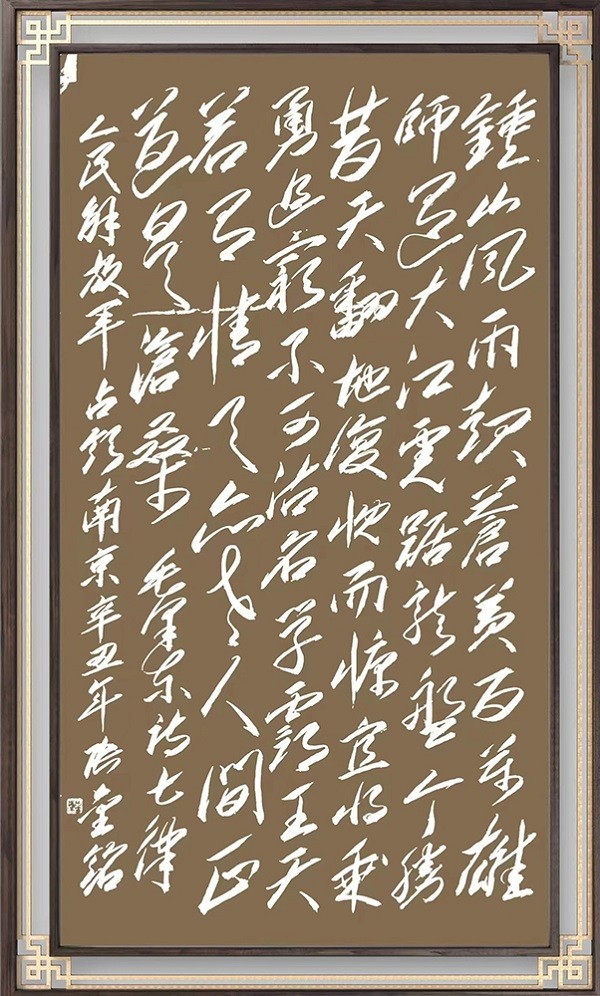 鍾山风雨起蒼黄百万雄
師過大江虎踞龍盤今勝
昔天翻地復慨而慷宜将乘
勇追窮不可沽名学霸王天
若有情天亦老人間正
道是滄桑 毛泽东詩七律
人民解放军占领南京辛丑年